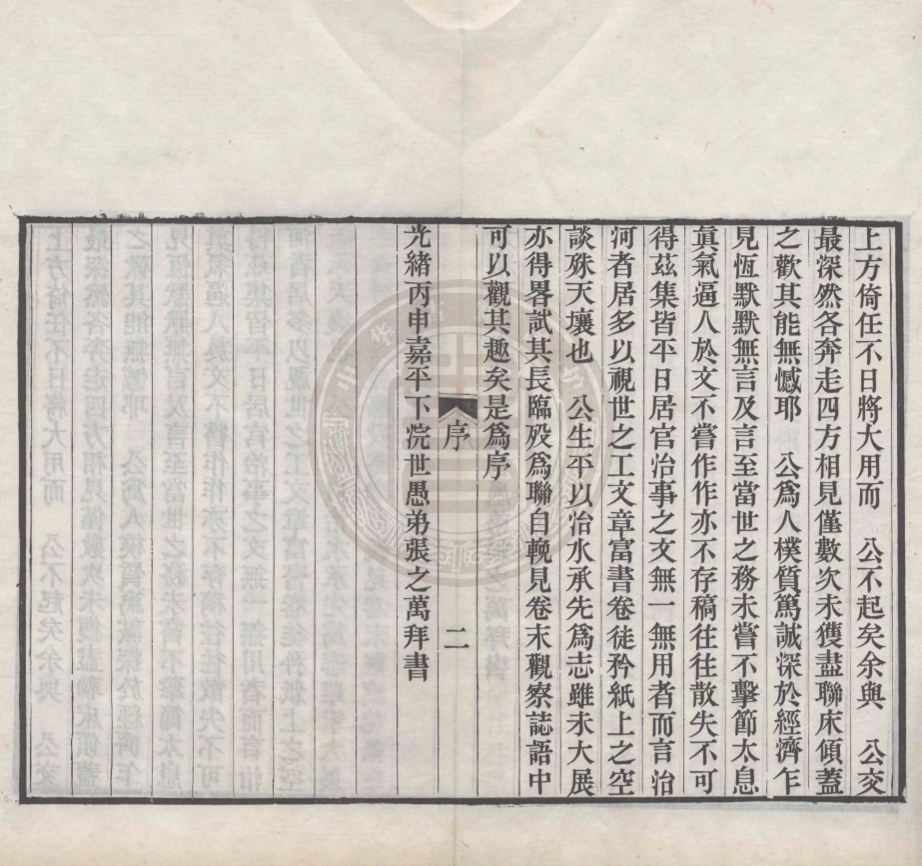 上方倚任不日將大用而　公不起矣余與　公交
最深然各奔走四方相見僅數次未獲盡聯床傾蓋
之歡其能無憾耶　公爲人樸質篤誠深於經濟乍
見恆默默無言及言至當世之務未嘗不擊節太息
眞氣逼人於文不嘗作作亦不存稿往往散失不可
得茲集皆平日居官治事之文無一無用者而言治
河者居多以視世之工文章富書卷徒矜紙上之空
談殊天壤也　公生平以治水承先爲志雖未大展
亦得畧試其長臨歿爲聯自輓見卷末觀察誌語中
可以觀其趣矣是爲序
序　二
光緒丙申嘉平下浣世愚弟張之萬拜書